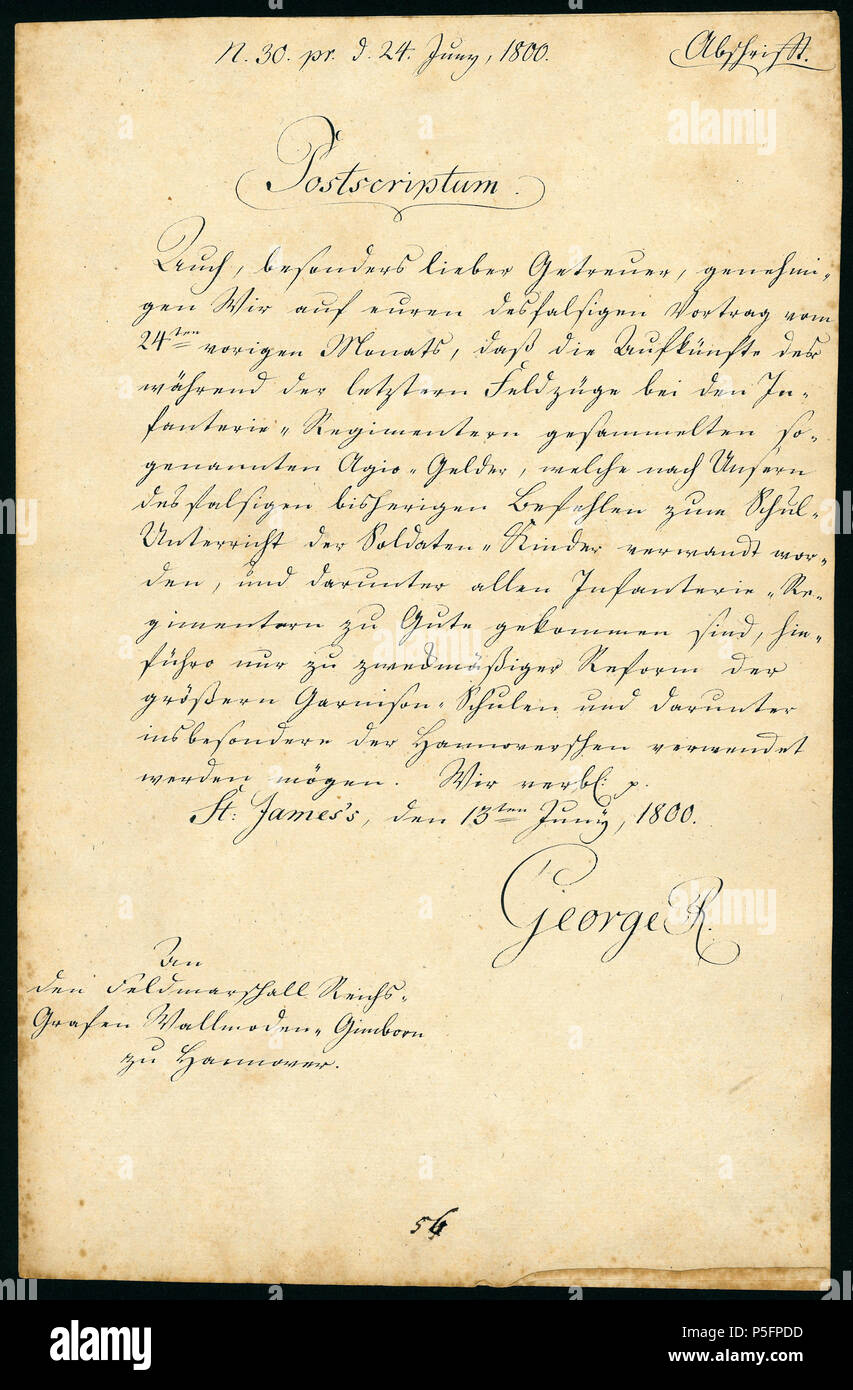 N. 30. pr. d. 24. Juny, 1800.
Abschrifft.
Postscriptum.
Auch, besonders lieber Getreuer, genehmi-
gen Wir auf euren desfalsigen Vortrag vom
24ten vorigen Monats, daß die Aufkünfte der
während der letztern Feldzüge bei den In-
fanterie-Regimentern gesammelten so-
genannten Agio-Gelder, welche nach Unsern
desfalsigen bisherigen Befehlen zum Schul-
Unterricht der Soldaten-Kinder verwandt wor-
den, und darunter allen Infanterie-Re-
gimentern zu Gute gekommen sind, hin-
führo nur zu zweckmäßiger Reform der
größern Garnison-Schulen und darunter
insbesondere der Hannoverschen verwendet
werden mögen. Wir verbl: p.
St: James's, den 13ten Juny, 1800.
George R.
An
den Feldmarschall Reichs-
Grafen Wallmoden-Gimborn
zu Hannover.
56
alamy
alamy
Image ID: P5FPDD
www.alamy.com